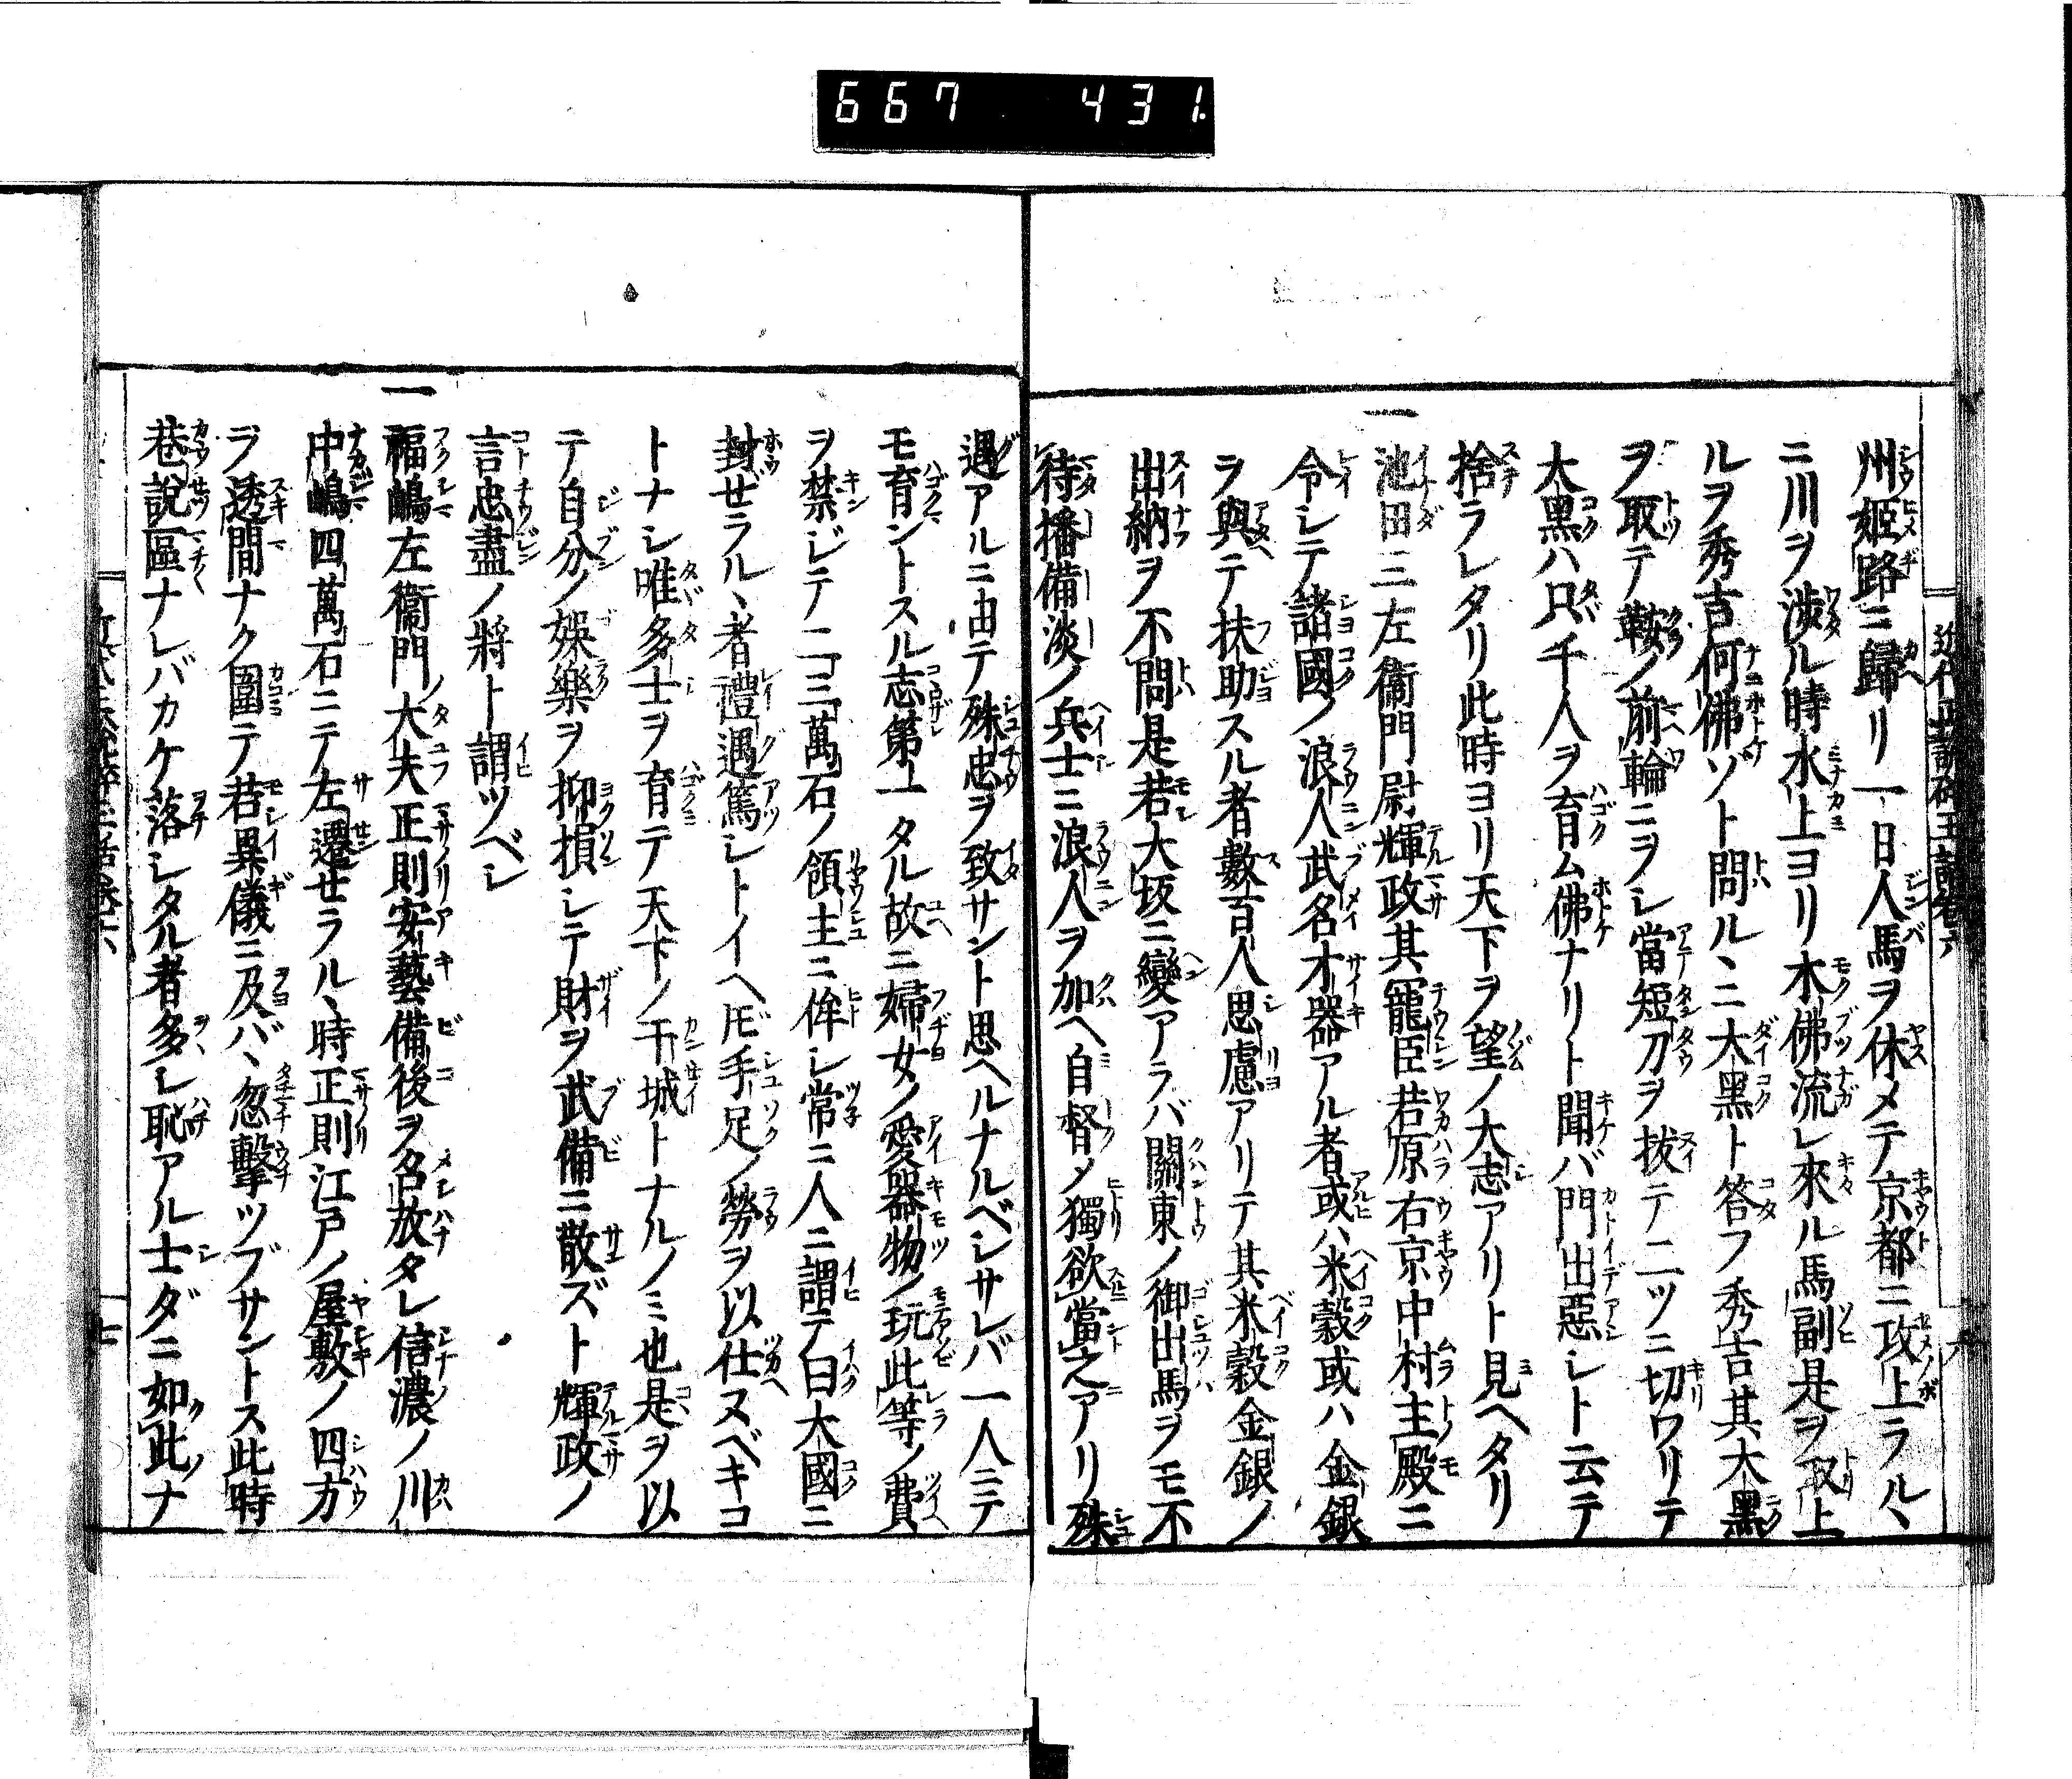 667 431
州姫路ニ歸リ一日人馬ヲ休メテ京都ニ攻上ラルヽ
ニ川ヲ渉ル時水上ヨリ木佛流レ來ル馬副是ヲ取上
ルヲ秀吉何佛ソト問ルヽニ大黑ト答フ秀吉其大黑
ヲ取テ鞍ノ前輪ニヲシ當短刀ヲ抜テ二ツニ切ワリテ
大黑ハ只千人ヲ育ム佛ナリト聞バ門出惡シト云テ
捨ラレタリ此時ヨリ天下ヲ望ノ大志アリト見ヘタリ
一池田三左衞門尉輝政其寵臣若原右京中村主殿ニ
令シテ諸國ノ浪人武名才器アル者或ハ米穀或ハ金銀
ヲ與テ扶助スル者數百人思慮アリテ其米穀金銀ノ
出納ヲ不問是若大坂ニ變アラバ關東ノ御出馬ヲモ不
待播備淡ノ兵士ニ浪人ヲ加ヘ自督メ獨欲當之アリ殊
遇アルニ由テ殊忠ヲ致サント思ヘルナルベシサレバ一人ニテ
モ育ントスル志第一タル故ニ婦女ノ愛器物ノ玩此等ノ費
ヲ禁ジテ二コ三萬石ノ領主ニ侔シ常ニ人ニ謂テ曰大國ニ
封ぜラルヽ者禮遇篤シトイヘ𪜈手足ノ勞ヲ以仕ヌベキコ
トナシ唯多士ヲ育テ天下ノ干城トナルノミ也是ヲ以
テ自分ノ娯樂ヲ抑損シテ財ヲ武備ニ散ズト輝政ノ
言忠盡ノ將ト謂ツベシ
一福嶋左衞門大夫正則安藝備後ヲ召放タレ信濃ノ川
中嶋四萬石ニテ左遷せラルヽ時正則江戸ノ屋敷ノ四方
ヲ透間ナク圍テ若異儀ニ及バヽ忽擊ツブサントス此時
巷說區ナレバカケ落シタル者多シ恥アル士ダニ如此ナ